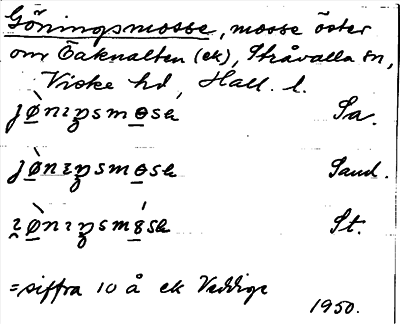 Göningsmosse, mosse öster
om Eaknalten (ek), Stråvalla sn,
Viske hd, Hall. l.
jø̀nɪŋsmɵsa Sa.
jø̀nɪŋsmɵsa Sand.
ø̀nɪŋsm sa St.
=siffra 10 å ek Veddige
1950.